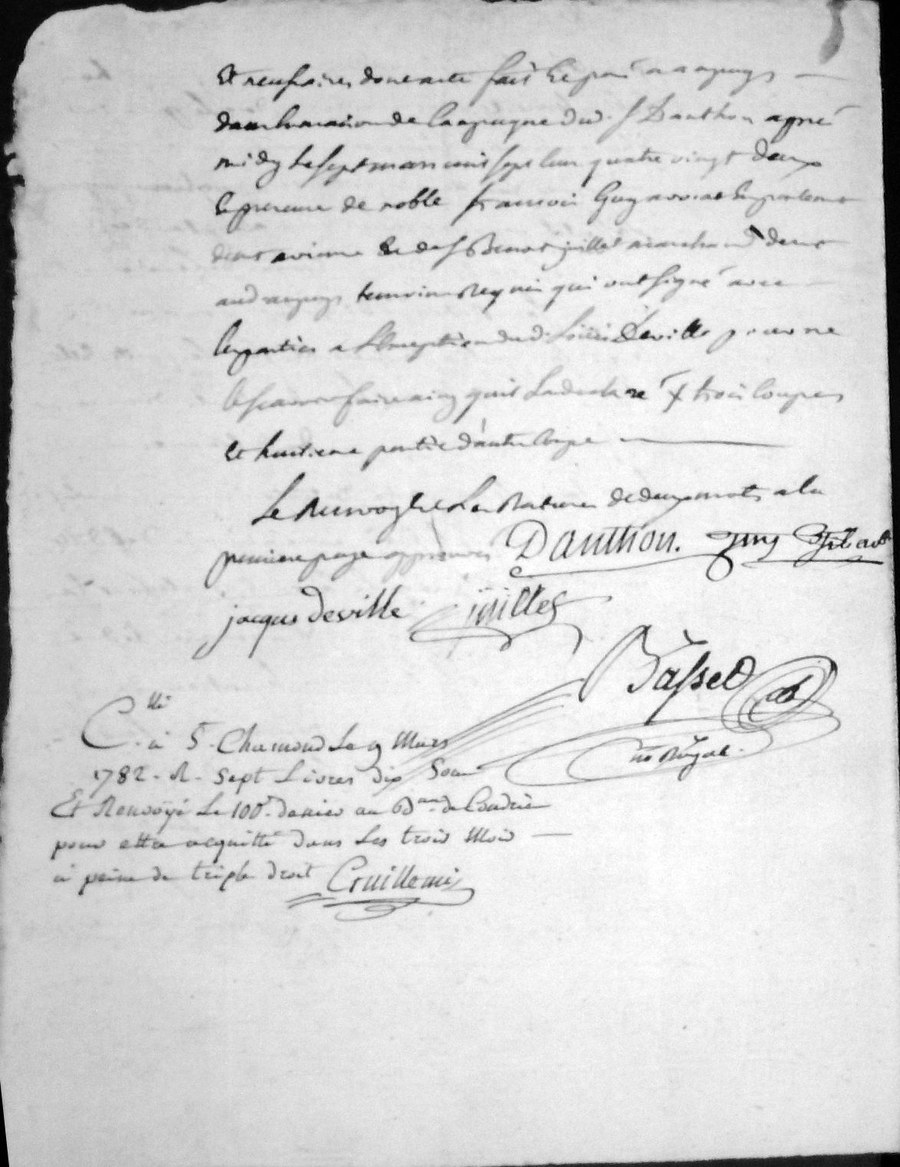 et neufieme dont acte fait et passé a
dans la maison de Campagne dud. S Danthon après
midy le sept mars mil sept cent quatre vingt deux
En presence de noble francois Guy avocat En parlement
et de S Benoit juillet marchand demt
aud temoins Requis qui ont signé avec
les parties a l'Exception dud Deville pour ne
le scavoir faire ainsy quil la declaré X trois coupes
et huitieme partie d'autre Coupe
Le Renvoy et La Rature de deux mots a la
premiere page approuvés Danthon. Guy
jacques deville juillet
Basset
no Royal.
C.llé à St Chamond Le 9 Mars
1782. R. Sept Livres dix Sous
Et Renvoyé Le 100e denier au Bau de Condrieu
pour etre acquitté dans Les trois Mois
à peine de triple droit